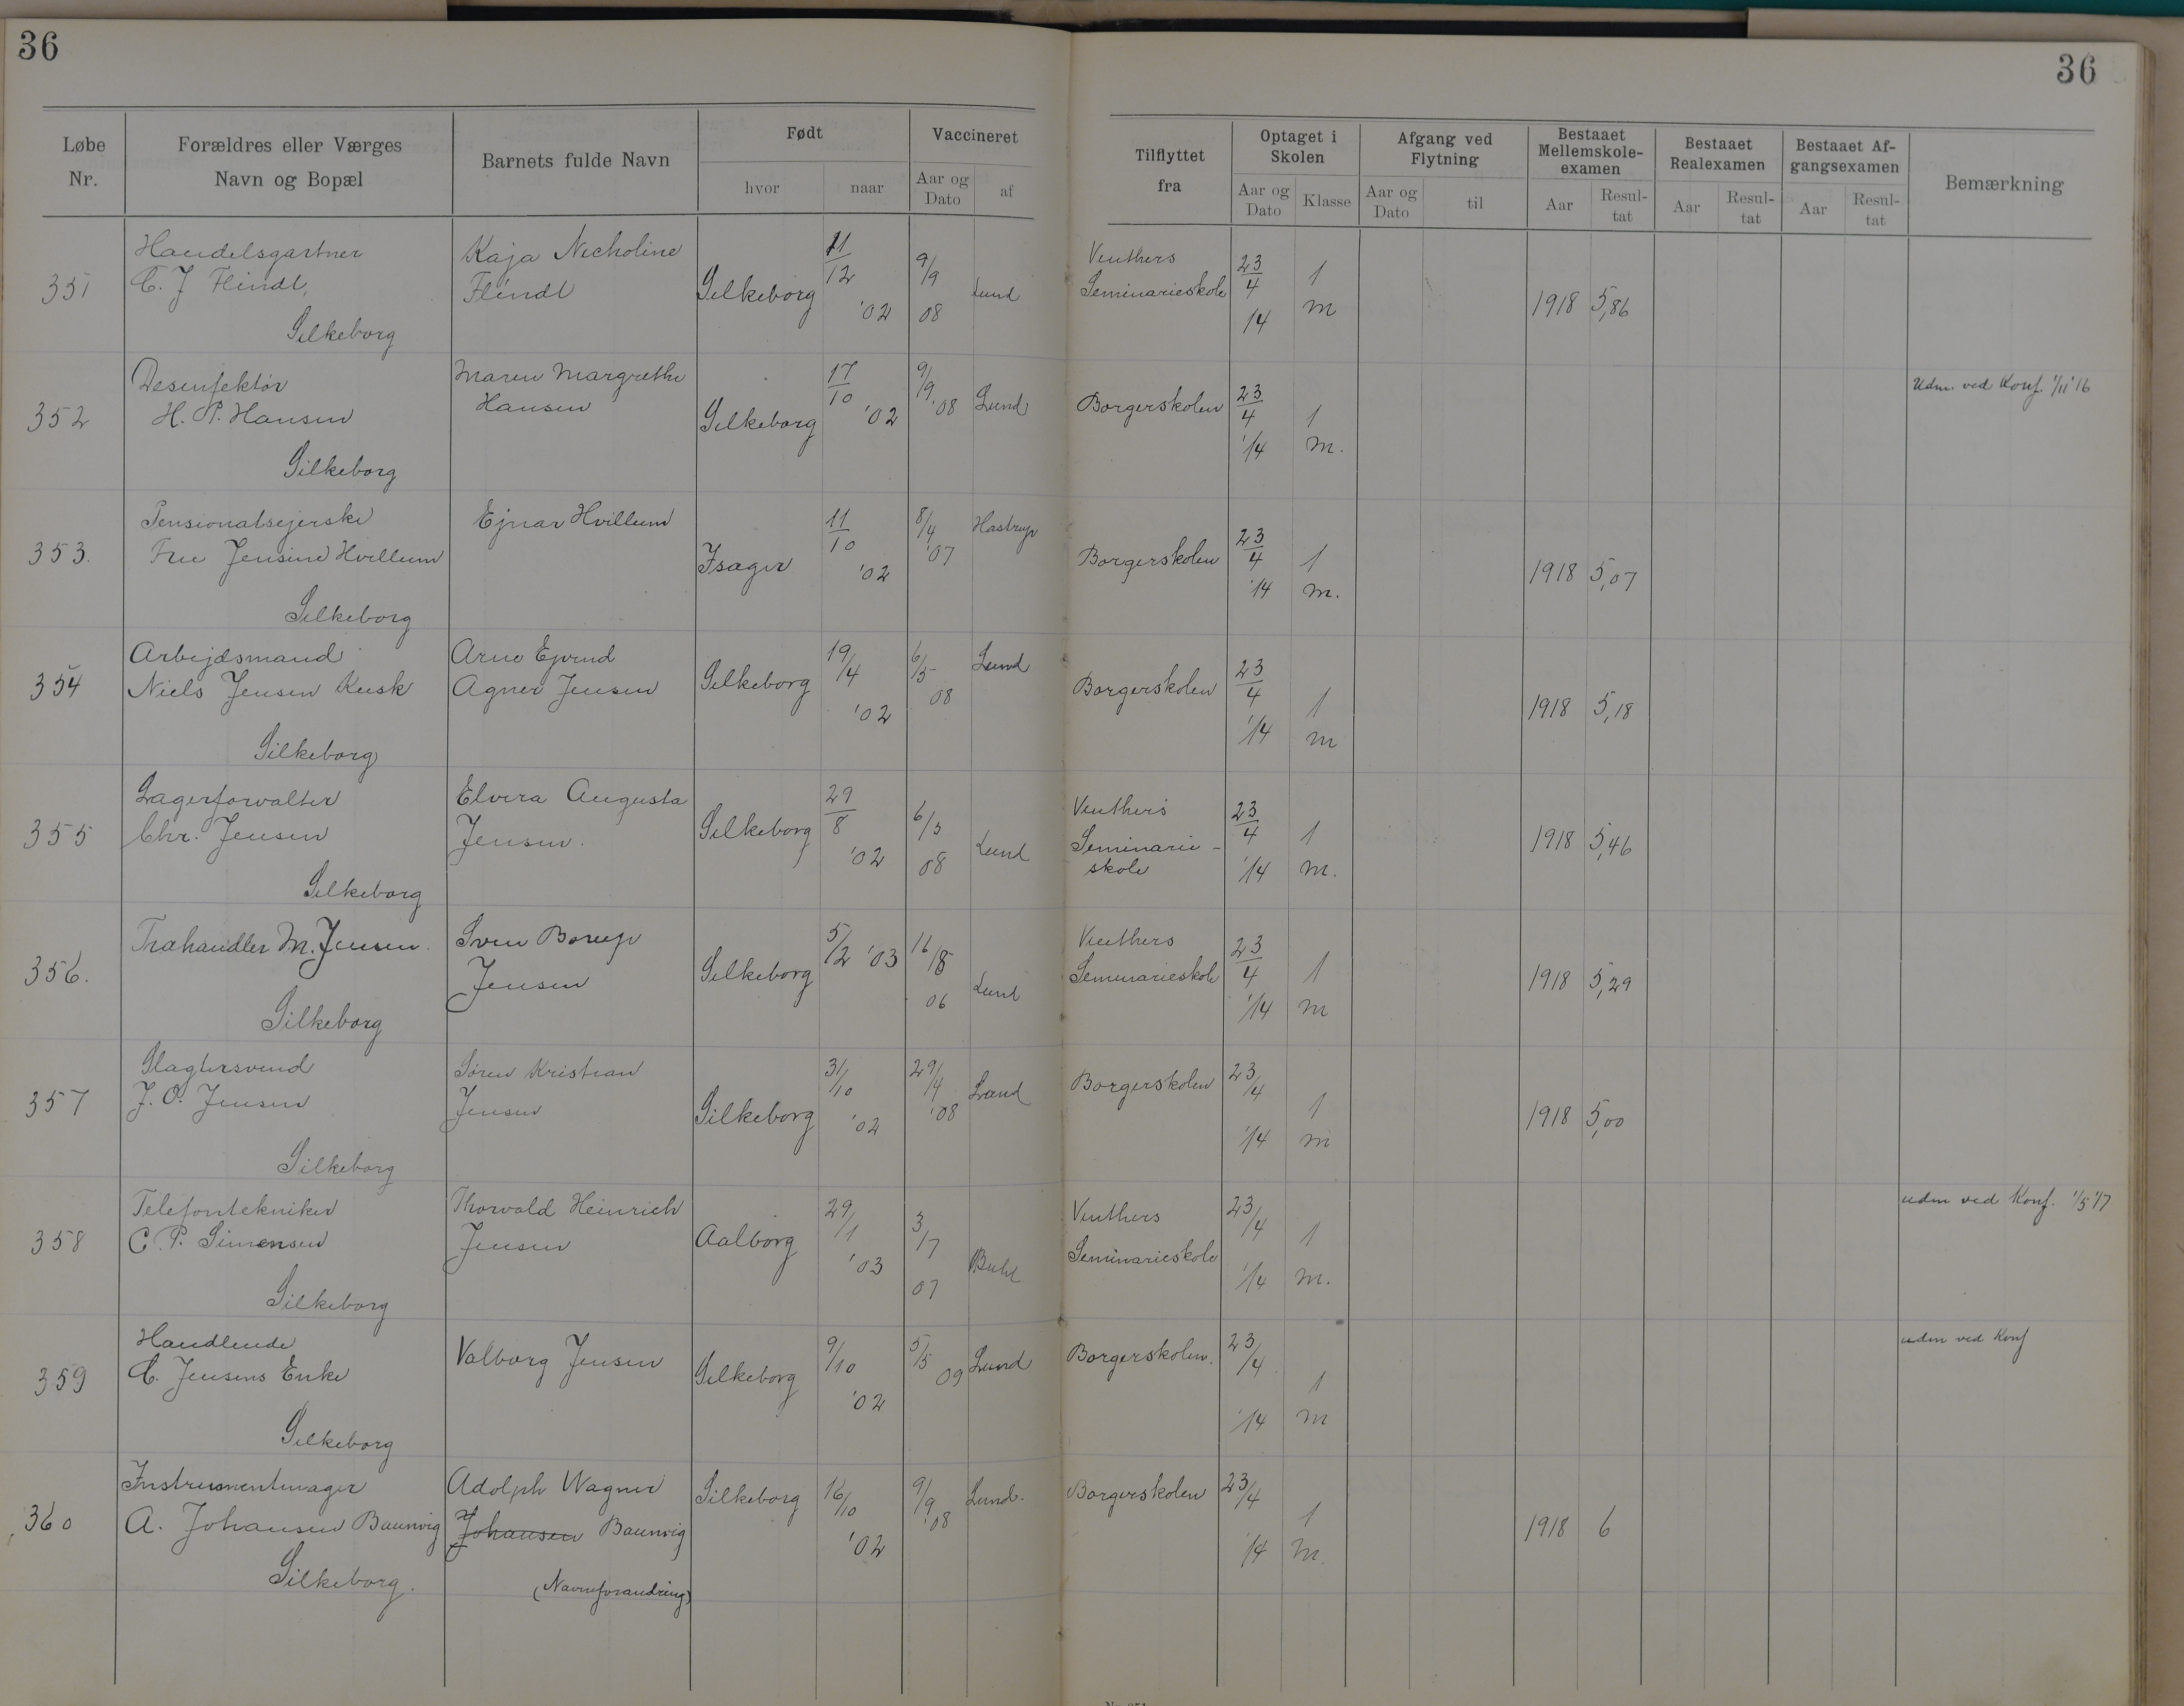 36
36
Løbe Nr.
Forældres eller Værges Navn og Bopæl
Barnets fulde Navn
Født
hvor
naar
Vaccineret
Aar og Dato
af
Tilflyttet fra
Optaget i Skolen
Aar og Dato
Klasse
Afgang ved Flytning
Aar og Dato
til
Bestaaet Mellemskole-examen
Aar
Resul-tat
Bestaaet Realexamen
Aar
Resul-tat
Bestaaet Af-gangsexamen
Aar
Resul-tat
Bemærkning
351 Handelsgartner Kaja Nicholine 11/12 9/9 Venthers 23/4 1
C. J Flindt, Flindt Silkeborg '02 08 Lund Seminarieskole 14 m 1918 5,86
Silkeborg
352 Desinfektør Maren Margrethe 17/10 9/9 23/4 Udm. ved Konf. 1/11 '16
H. P. Hansen Hansen Silkeborg '02 '08 Lund Borgerskolen '14 1 m.
Silkeborg
353. Pensionatsejerske Ejnar Hvillum 11/10 8/4 Hastrup 23/4 1
Fru Jensine Hvillum Isager '02 '07 Borgerskolen '14 m. 1918 5,07
Silkeborg
354 Arbejdsmand Arne Ejvind 19/4 6/5 Lund 23/4 1
Niels Jensen Kusk Agner Jensen Silkeborg '02 08 Borgerskolen '14 m 1918 5,18
Silkeborg
355 Lagerforvalter Elvira Augusta 29/8 6/5 Venthers 23/4 1
Chr. Jensen Jensen. Silkeborg '02 08 Lund Seminarie- '14 m. 1918 5,46
Silkeborg skole
356. Trahandler M. Jensen. Sven Borup 5/2 '03 16/8 Venthers 23/4 1
Jensen Silkeborg 06 Lund Seminarieskole '14 m 1918 5,29
Silkeborg
357 Slagtersvend Søren Kristian 31/10 29/4 Borgerskolen 23/4 1
J. O. Jensen Jensen Silkeborg '02 '08 Lund '14 m 1918 5,00
Silkeborg
358 Telefontekniker Thorvald Heinrich 29/1 3/7 Venthers 23/4 1 udm ved Konf. 1/5 '17
C. P. Simensen Jensen Aalborg '03 07 Buhl Seminarieskole '14 m.
Silkeborg
359 Handlende Valborg Jensen 9/10 5/5 Borgerskolen. 23/4 1 udm ved Konf
C. Jensens Enke Silkeborg '02 09 Lund '14 m
Silkeborg
360 Instrumentmager Adolph Wagner Silkeborg 16/10 9/9 Lund. Borgerskolen 23/4 1
A. Johansen Baunvig Johansen Baunvig '02 '08 '14 m. 1918 6
Silkeborg. (Navneforandring)